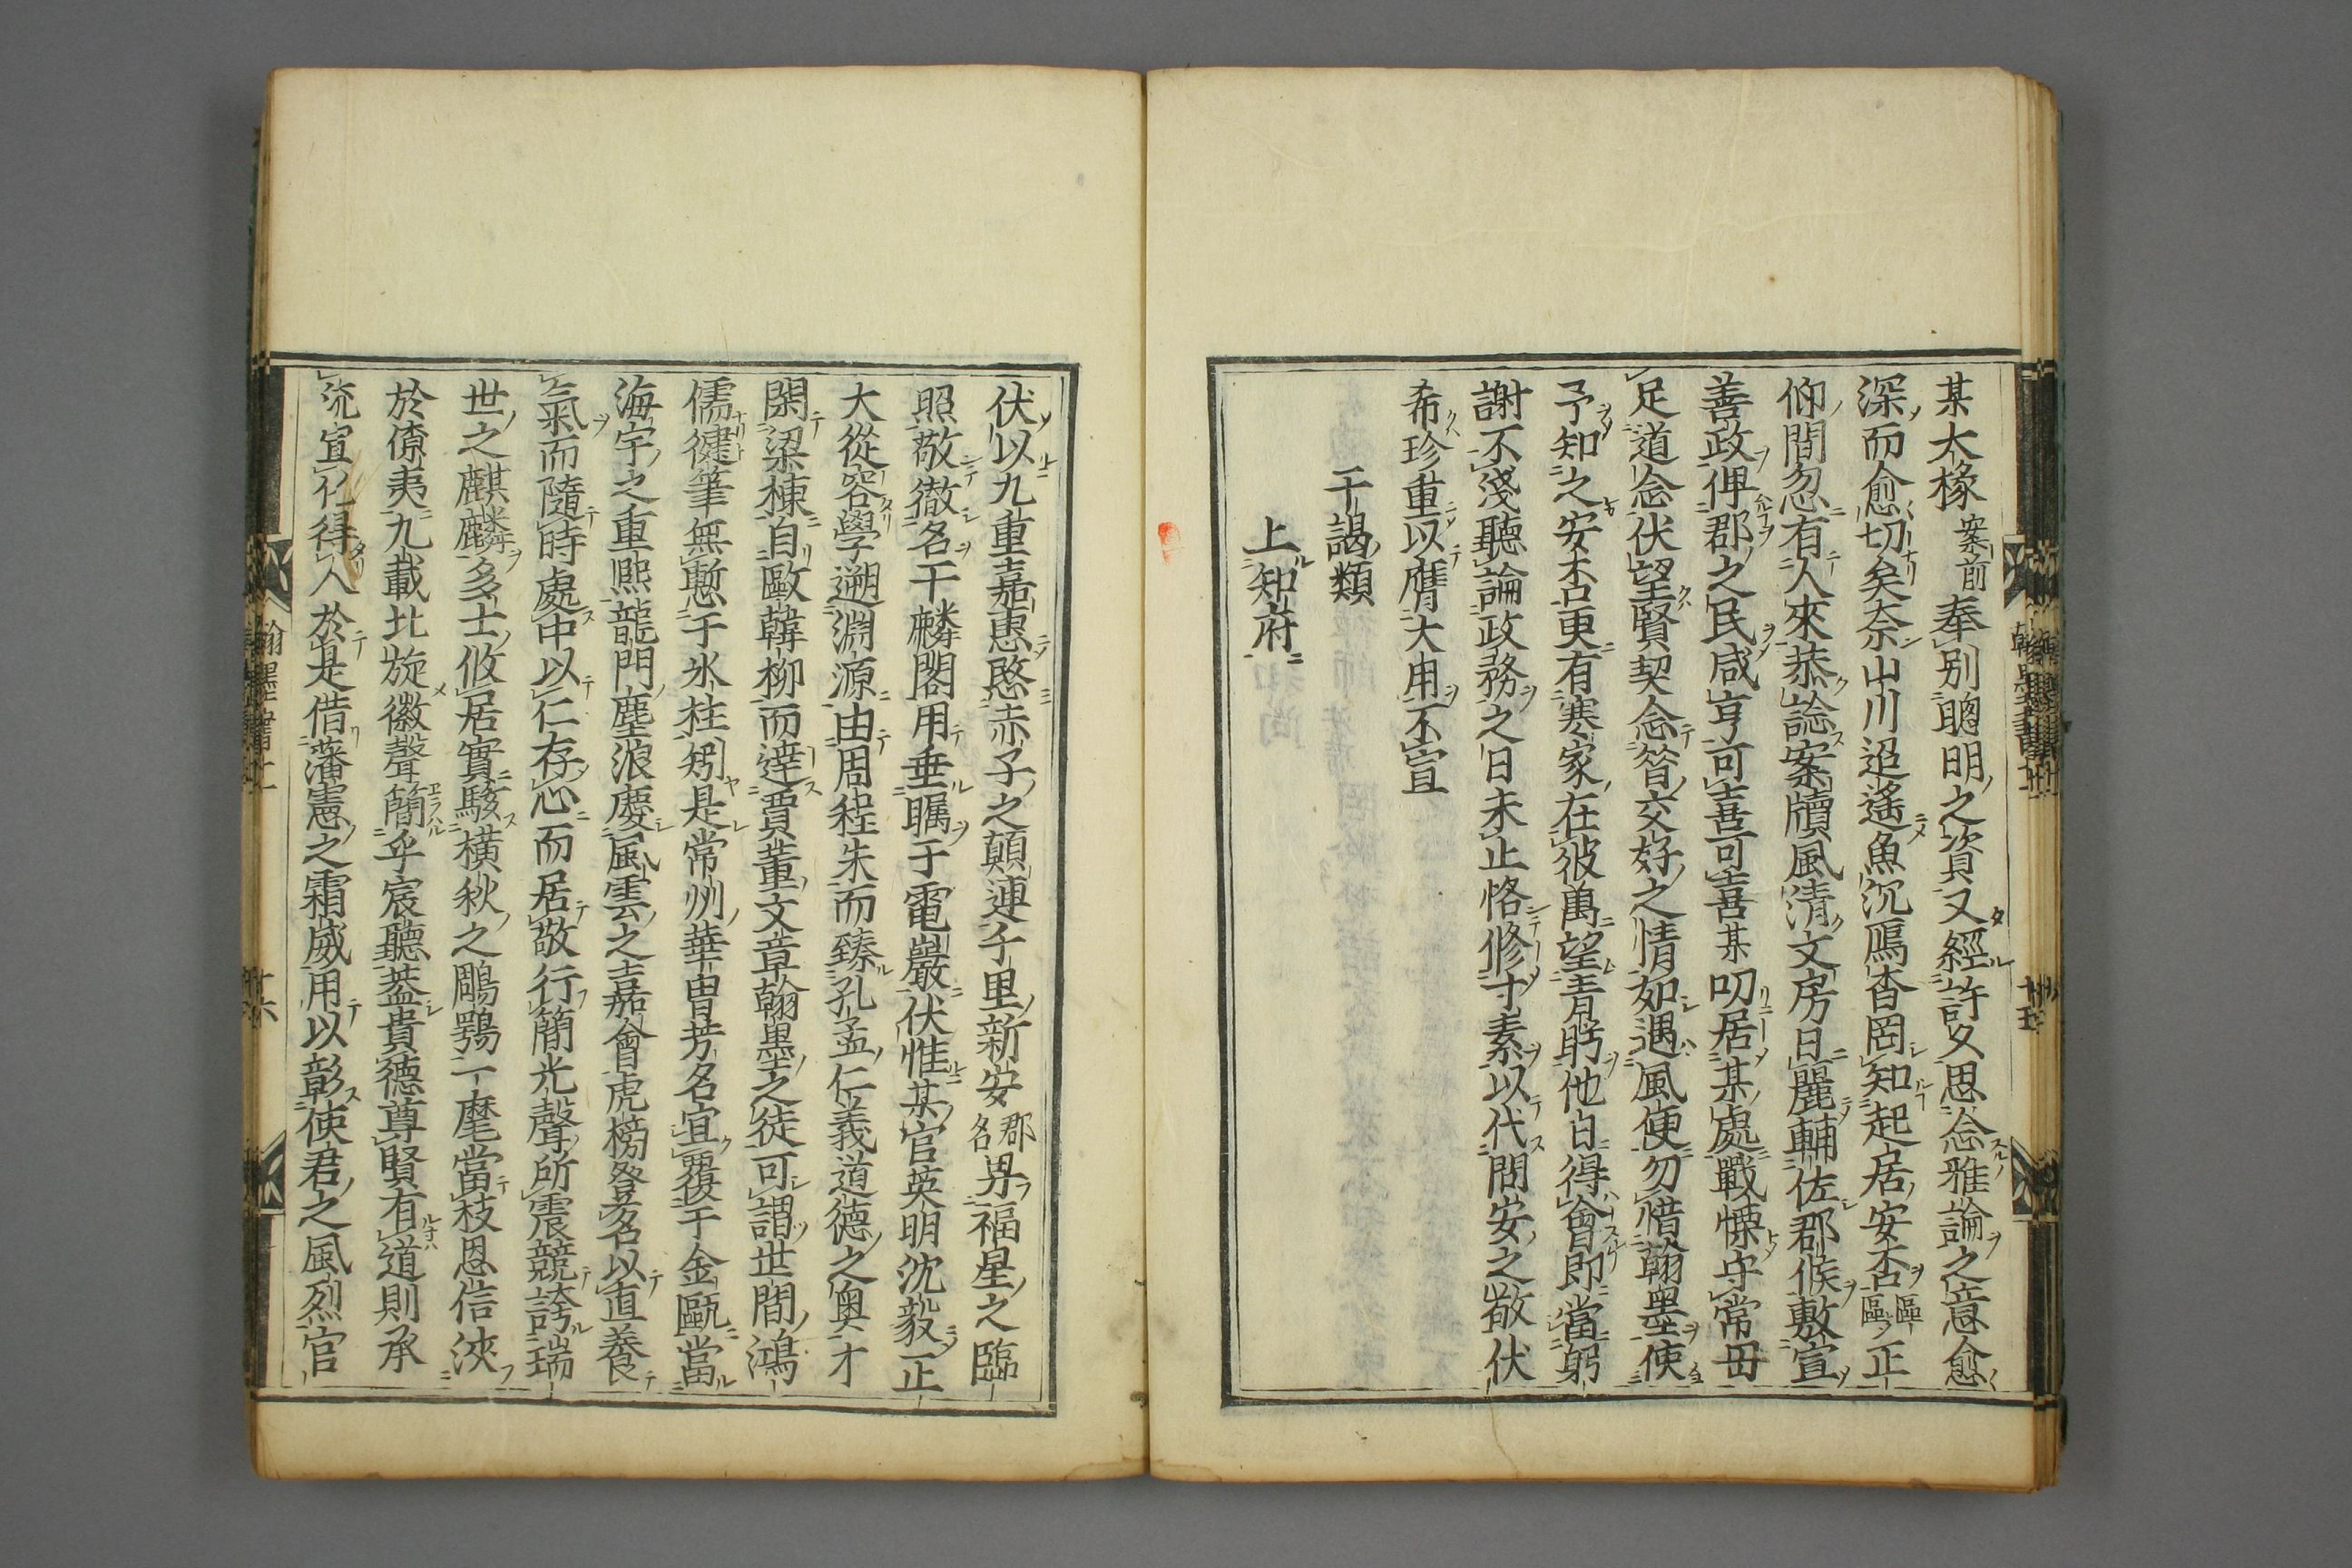 某太椽案前奉別聰明之資又經許久思念雅論之意愈
深而愈切矣奈山川迢遙魚沉鴈杳罔知起居安否區區正
仰間忽有人來恭諗案牘風清文房日麗輔佐郡候敷宣
善政俾郡之民咸享可喜可喜某叨居某處戰慄守常毋
足道念伏望賢契念筲交好之情如遇風便勿惜翰墨使
予知之安否更有寒家在彼萬望青眄他日得會即當躬
謝不淺聽論政務之日未止恪修寸素以代問安之敬伏
希珍重以膺大用不宣
干謁類
上知府
伏以九重嘉惠愍赤子之顛連千里新安郡名畀福星之臨
照敬徹名干麟閣用垂矚于電巖伏惟某官英明沈毅正
大從容學遡淵源由周程朱而臻孔孟仁義道德之奥才
閑梁棟自歐韓柳而達賈董文章翰墨之徒可謂世間鴻
儒健筆無慙于氷柱矧是常州華胄芳名宜覆于金甌當
海宇之重熙龍門塵浪慶風雲之嘉會虎榜登名以直養
氣而隨時處中以仁存心而居敬行簡光聲所震競誇瑞
世之麒麟多士攸居實駭橫秋之鵰鶚一麾當枝恩信浹
於僚夷九載北旋徽聲簡乎宸聽葢貴德尊賢有道則承
流宣化得人於是借藩憲之霜威用以彰使君之風烈官
翰墨書十
十六